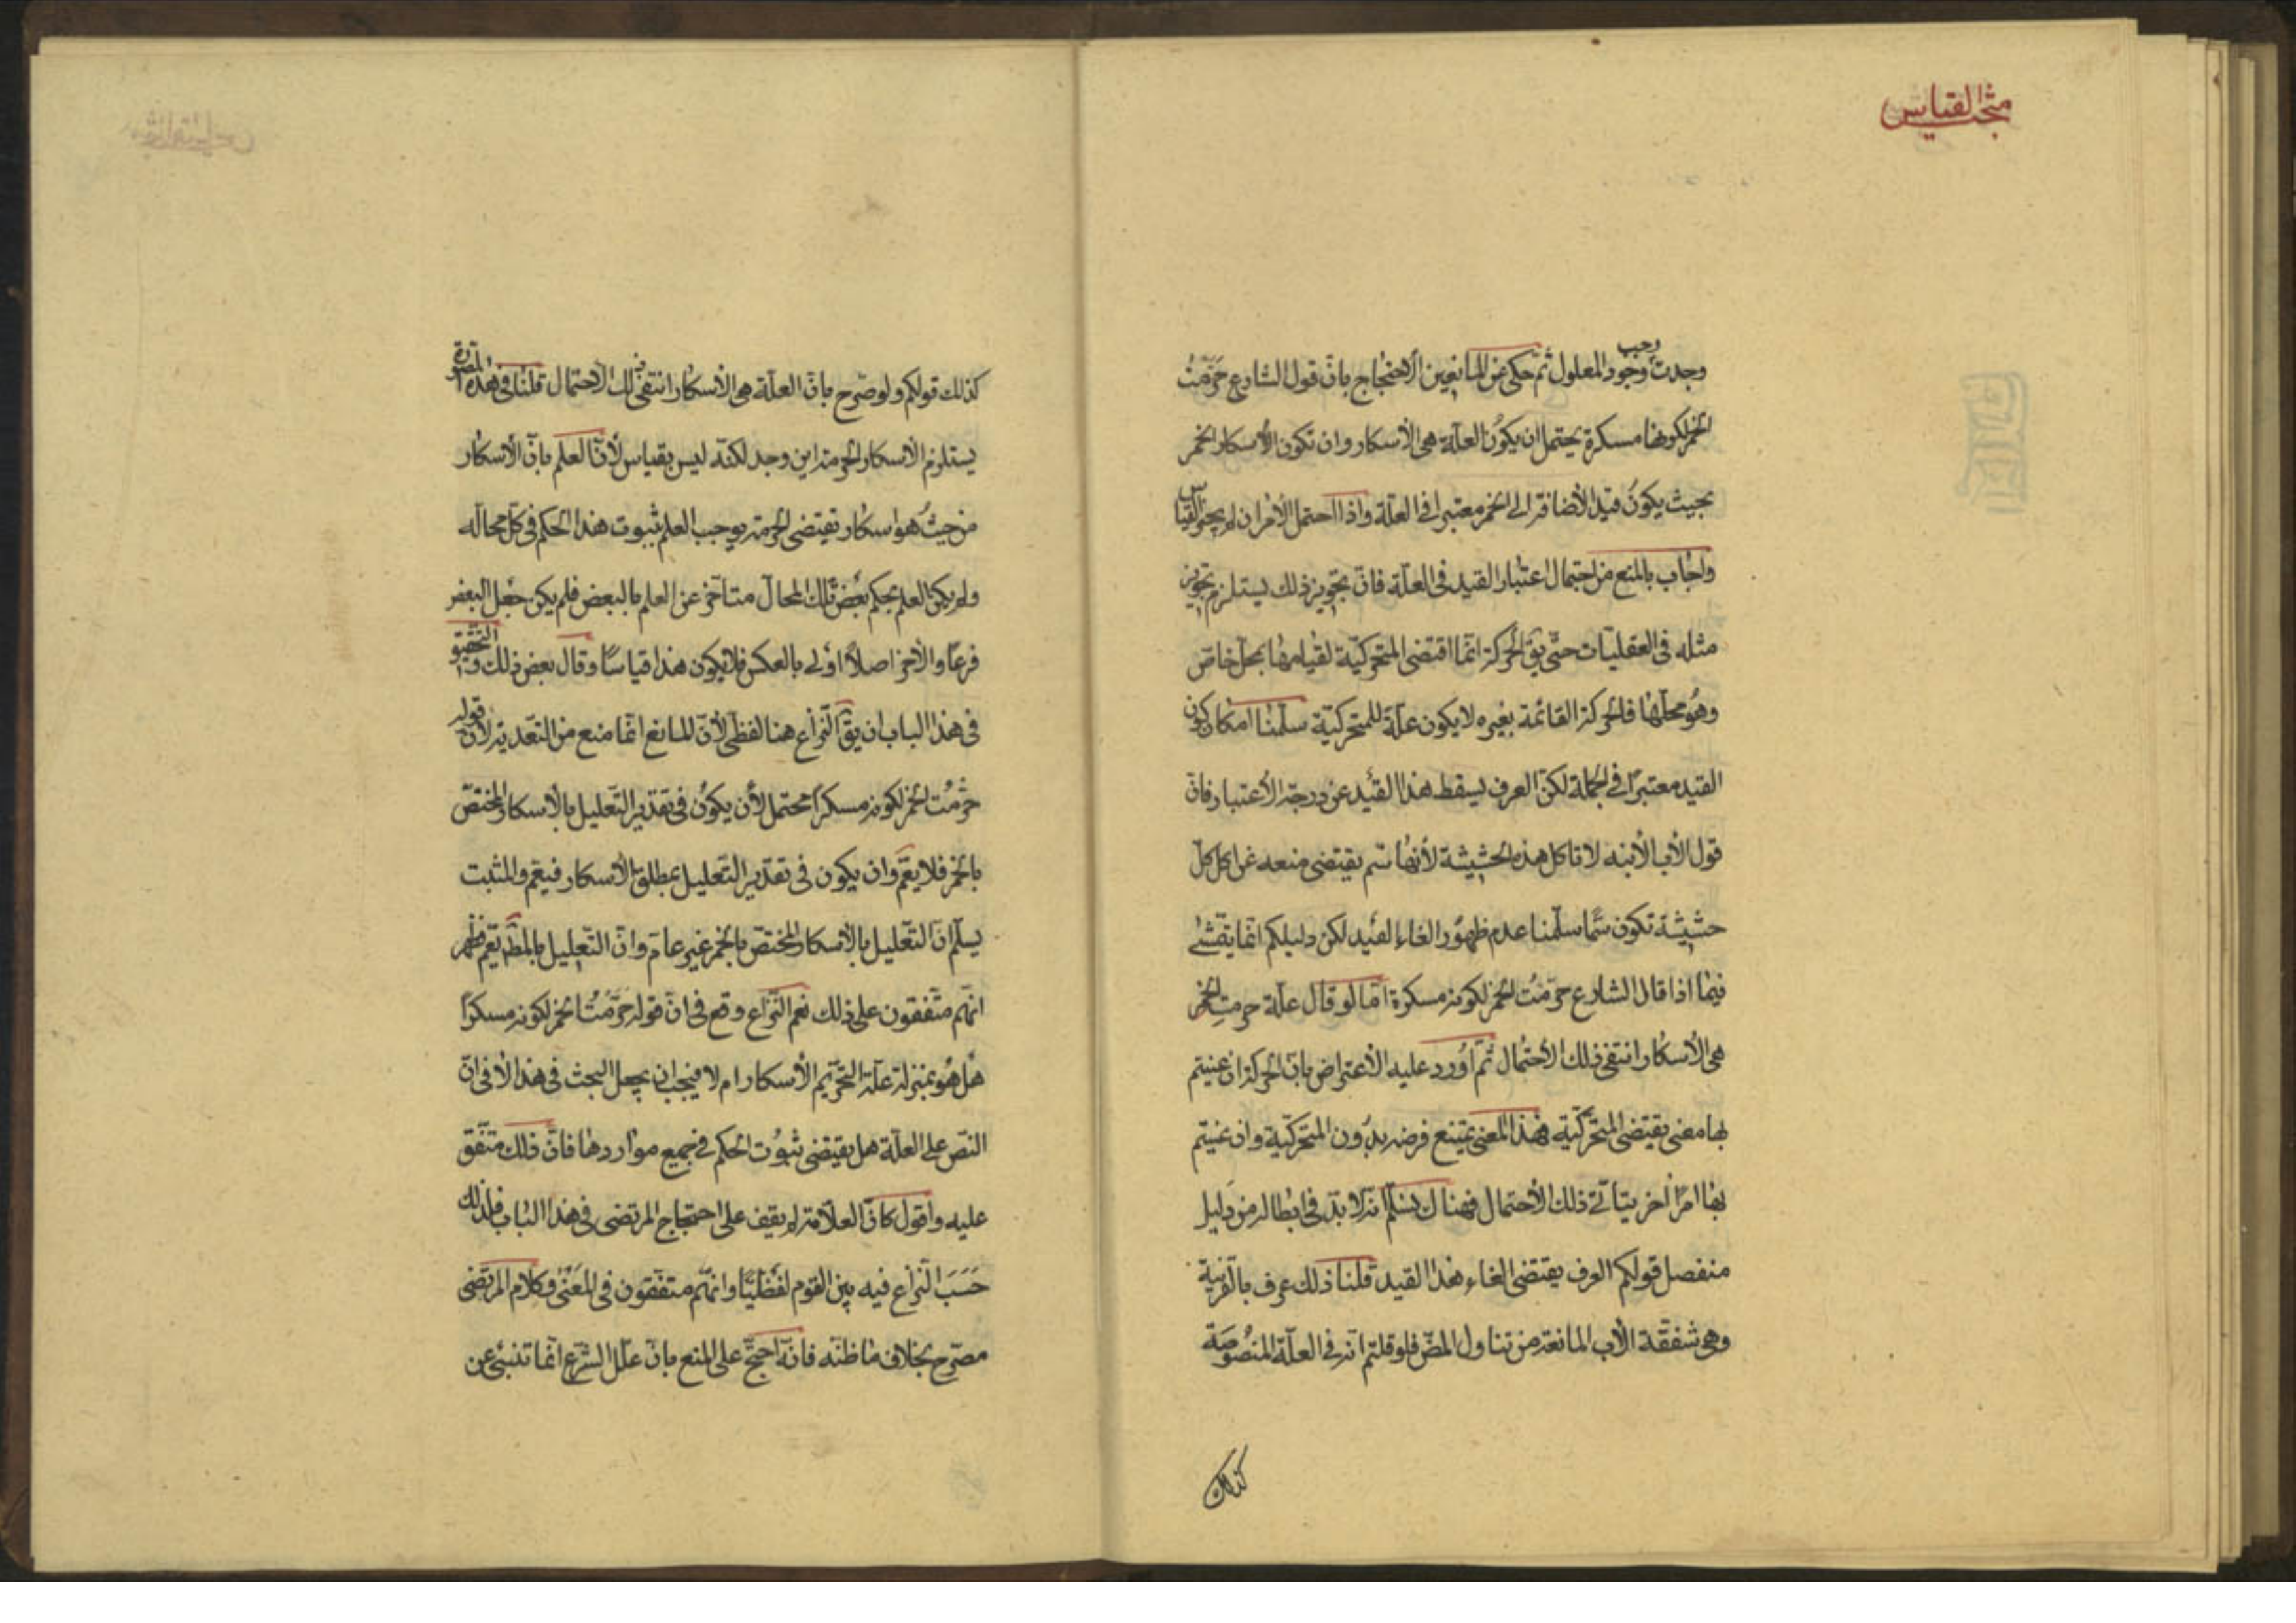 مبحث القياس
وجدت وجب وجود المعلول ثم حكى عن المانعين الاحتجاج بان قول الشارع حرمت
الخمر لكونها مسكرة يحتمل ان يكون العلة هى الاسكار وان تكون الاسكار الخمر
بحيث يكون قيد الاضافة الى الخمر معتبرا فى العلة واذا احتمل الامران لم يجز القياس
واجاب بالمنع من احتمال اعتبار القيد فى العلة فان تجويز ذلك يستلزم تجويز
مثله فى العقليات حتى يق الحركة انما اقتضى المتحركية لقيامها بمحل خاص
وهو محلها فالحركة القائمة بغيره لا يكون علة للمتحركية سلمنا امكان كون
القيد معتبرا فى الجملة لكن العرف يسقط هذا القيد عن درجة الاعتبار فان
قول الاب لابنه لا تاكل هذه الحشيشة لانها سم يقتضى منعه عن اكل كل
حشيشة تكون سما سلمنا عدم ظهور الغاء القيد لكن دليلكم انما يتمشى
فيما اذا قال الشارع حرمت الخمر لكونه مسكرة اما لو قال علة حرمت الخمر
هى الاسكار انتفى ذلك الاحتمال ثم اورد عليه الاعتراض بان الحركة ان عنيتم
بها معنى يقتضى المتحركية فهذا المعنى يمتنع فرضه بدون المتحركية وان عنيتم
بها امرا اخر يتاتى ذلك الاحتمال فهناك نسلم انه لا بد فى ابطاله من دليل
منفصل قولكم العرف يقتضى الغاء هذا القيد قلنا ذلك عرف بالقرينة
وهى شفقة الاب المانعة من تناول المضر فلو قلتم انه فى العلة المنصوصة
كذلك
كذلك قولكم ولو صرح بان العلة هى الاسكار انتفى ذلك الاحتمال قلنا فى هذه الصورة
يستلزم الاسكار الحرمة اين وجد لكنه ليس بقياس لان العلم بان الاسكار
من حيث هو اسكار تقتضى الحرمة يوجب العلم بثبوت هذا الحكم فى كل محاله
ولم يكن العلم بحكم بعض تلك المحال متاخر عن العلم بالبعض فلم يكن جعل البعض
فرعا والاخر اصلا اولى بالعكس فلا يكون هذا قياسا وقال بعض ذلك والتحقيق
فى هذا الباب ان يق النزاع هنا لفظى لان المانع انما منع من التعدية لان قوله
حرمت الخمر لكونه مسكرا محتمل لان يكون فى تقدير التعليل بالاسكار المختص
بالخمر فلا يعم وان يكون فى تقدير التعليل بمطلق الاسكار فيعم والمثبت
يسلم ان التعليل بالاسكار المختص بالخمر غير عام وان التعليل بالمط يعم فظهر
انهم متفقون على ذلك نعم النزاع وقع فى ان قوله حرمت الخمر لكونه مسكرا
هل هو بمنزلة علة التحريم الاسكار ام لا فيجب ان يجعل البحث فى هذا لا فى ان
النص على العلة هل يقتضى ثبوت الحكم فى جميع مواردها فان ذلك متفق
عليه واقول كان العلامة لم يقف على احتجاج المرتضى فى هذا الباب فلذلك
حسب النزاع فيه بين القوم لفظيا وانهم متفقون فى المعنى وكلام المرتضى
مصرح بخلاف ما ظنه فانه احتج على المنع بان علل الشرع انما تنبئ عن